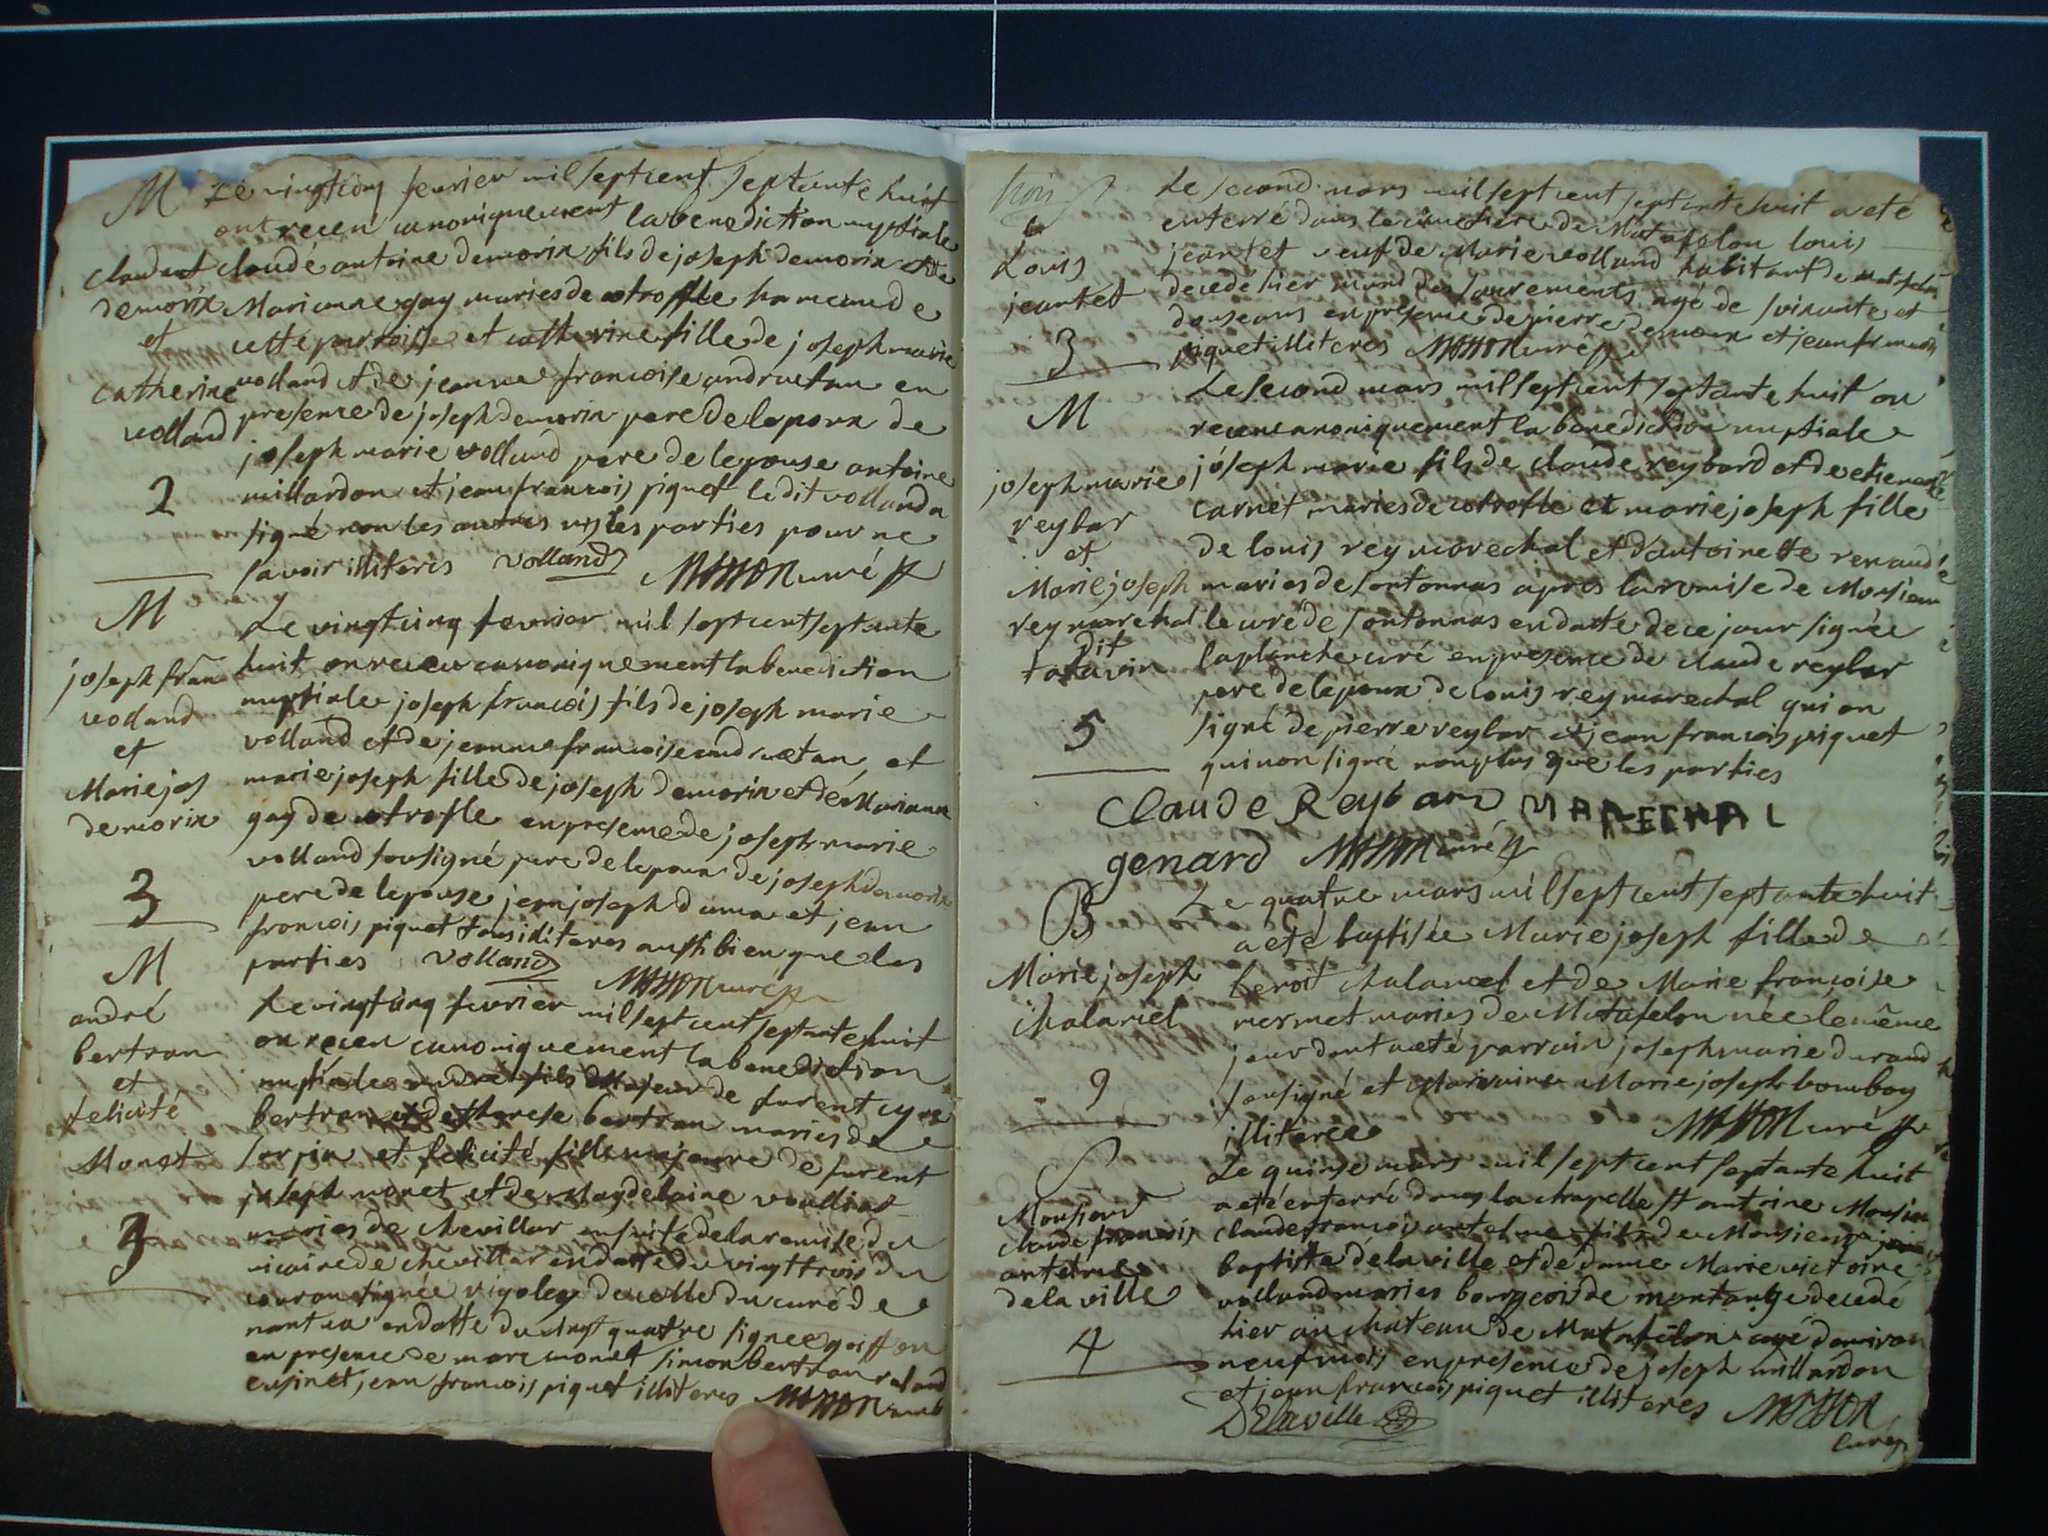 M Le vingtcinq fevrier mil septcent septante huit
ont receu canoniquement la benediction nuptiale
Claude ant claude antoine demorix fils de joseph demorix et de
demorix Marianne gay mariés de cotroffle hameau de
et cette parroisse et catherine fille de joseph marie
catherine volland et de jeanne francoise andruetan en
volland presence de joseph demorix pere de lepoux de
joseph marie volland pere de lepouse antoine
2 millardon et jean francois piquet ledit volland a
signé non les autres ny les parties pour ne
savoir illiteres volland MASSON curé
M Le vingtcinq fevrier mil septcent septante
joseph fran huit on receu canoniquement la benediction
volland nuptiale joseph francois fils de joseph marie
et volland et de jeanne francoise andruetan et
Marie jos marie joseph fille de joseph demorix et de Marianne
demorix gay de cotrofle en presence de joseph marie
volland sousigné pere de lepoux de joseph demorix
3 pere de lepouse jean joseph duma et jean
francois piquet tous illiteres aussi bien que les
M parties volland MASSON curé
andré Le vingtcinq fevrier mil septcent septante huit
bertran on receu canoniquement la benediction
et nuptiale andré fils majeur de furent
felicité bertran et de therese bertran mariés de
Monet et felicité fille majeure de furent
joseph monet et de Magdelaine
mariés de chevillar en suite de la remise du
vicaire de chevillar en datte du vingttrois du
couran signée de celle du curé de
nantua en datte du vingt quatre signée
en presence de marc monet simon bertran roland
cusinet, jean francois piquet illiteres MASSON curé
Le second mars mil septcent septante huit a eté
enterré dans le cimetiere de Matafelon louis
Louis jeantet veuf de Marie volland habitant de matafelon
jeantet decedé hier muni des sacrements agé de soixante et
douse ans en presence de pierre demorix et jean francois
3 piquet illiteres MASSON curé
Le second mars mil septcent septante huit on
M receu canoniquement la benediction nuptiale
joseph marie joseph marie fils de claude reybard et de etiennette
reybar carnet mariés de cotrofle et marie joseph fille
et de louis rey marechal et d'antoinette renaud
Marie joseph mariés de sontonnas apres la remise de Monsieur
rey marechal le curé de sontonnas en datte de ce jour signée
dit laplanche curé en presence de claude reybar
pere de lepoux de louis rey marechal qui on
5 signé de pierre reybar et jean francois piquet
qui non signé non plus que les parties
Claude Reybard MARECHAL
genard MASSON curé
B Le quatre mars mil septcent septante huit
a eté baptisée Marie joseph fille de
Marie joseph benoit chalancel et de Marie francoise
mermet mariés de Matafelon née le même
jour dont a eté parrain joseph marie durand
9 sousigné et Marraine Marie joseph bomboy
illiterée MASSON curé
S Le quinse mars mil septcent septante huit
a eté enterré dans la chapelle st antoine Monsieur
Monsieur claude francois antelme fils de Monsieur jean
claude francois baptiste delaville et de dame Marie victoire
antelme volland mariés bourgeois de montange decedé
dela ville hier au chateau de Matafelon agé denviron
4 neuf mois en presence de joseph millardon
et jean francois piquet illiteres MASSON
Delaville curé